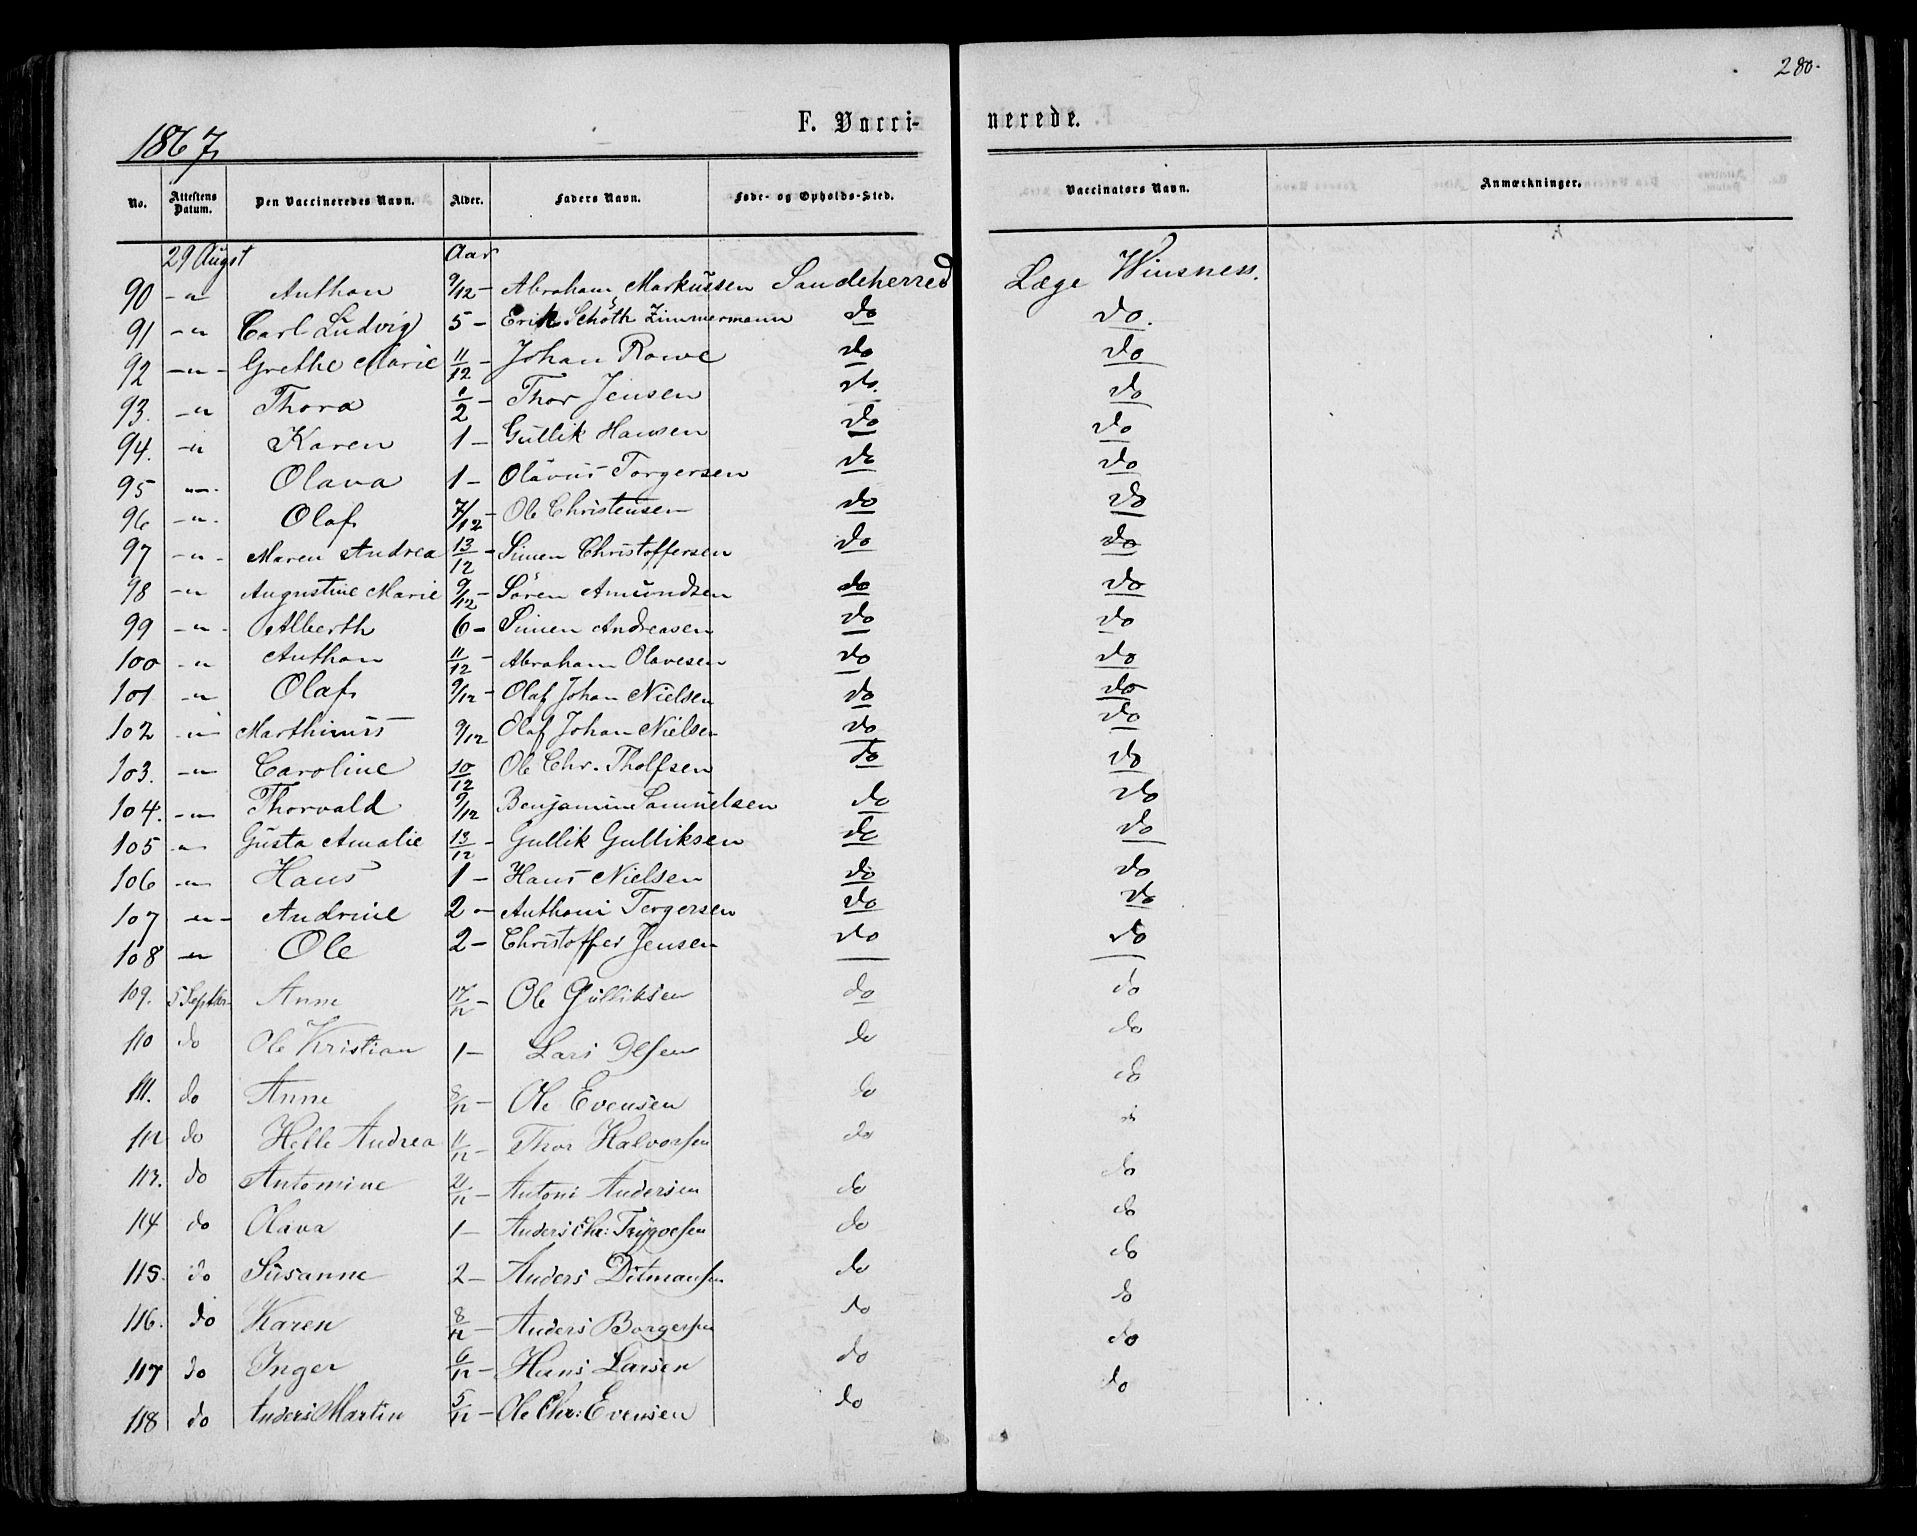 280.
1867,
F. Vacci- nerede.
No. Attestens Datum. Den Vaccineredes Navn. Alder. Faders Navn. Føde- og Opholds-Sted. Vaccinators Navn. Anmærkninger.
29 Augst Aar
90 -"- Anthon 9/12 - Abraham Markussen Sandeherred Læge Winsness.
91 -"- Carl Ludvig 5 - Erik Schöth Zimmermann do do.
92 -"- Grethe Marie 11/12 - Johan Rowe do do
93. -"- Thora 1/2 - Thor Jensen do. do
94. -"- Karen 1 - Gullik Hansen do do
95 -"- Olava 1 - Olavus Torgersen do do
96 -"- Olaf 7/12 - Ole Christensen do do
97 -"- Maren Andrea 13/12 - Simen Christoffersen do do
98 -"- Augustine Marie 9/12 - Sören Amundsen do do
99 -"- Alberth 6 - Simen Andreasen do do
100 -"- Anthon 11/12 - Abraham Olavesen do do
101 -"- Olaf 9/12 - Olaf Johan Nielsen do do
102 -"- Marthinus 9/12 Olaf Johan Nielsen do do
103. -"- Caroline 10/12 Ole Chr. Tholfsen do do
104. -"- Thorvald 9/12 Benjamin Samuelsen do do
105 -"- Gusta Amalie 13/12 - Gullik Gulliksen do do
106 -"- Hans 1 - Hans Nielsen do do
107 -"- Andrine 2 - Anthoni Torgersen do do
108 -"- Ole 2 - Christoffer Jensen do do
109. 5 Septbr. Anne 17/12 - Ole Gulliksen do do
110 do Ole Kristian 1 - Lars Olsen do do
111. do Anne 8/12 - Ole Evensen do do
112 do Helle Andrea 11/12 - Thor Halvorsen do do
113. do Antomine 21/12 - Antoni Andersen do do
114 do Olava 1 - Anders Chr: Trygvesen do do
115. do Susanne 2 - Anders Ditmansen do do
116. do Karen 8/12 - Anders Borgersen do do
117 do Inger 6/12 - Hans Larsen do do
118 do Anders Martin 5/12 - Ole Chr: Evensen do do